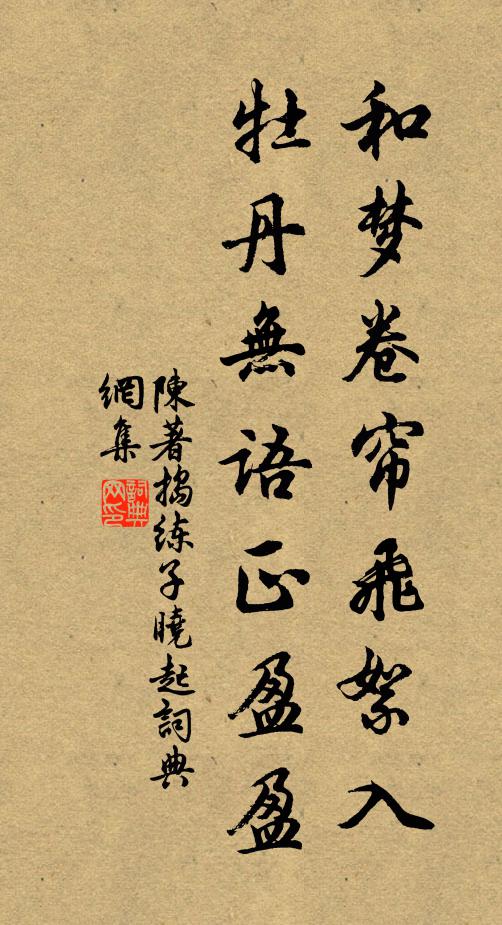 和梦卷帘飛絮入
牡丹無語正盈盈
陳著搗练子曉起詞典
網集
詞典
网印